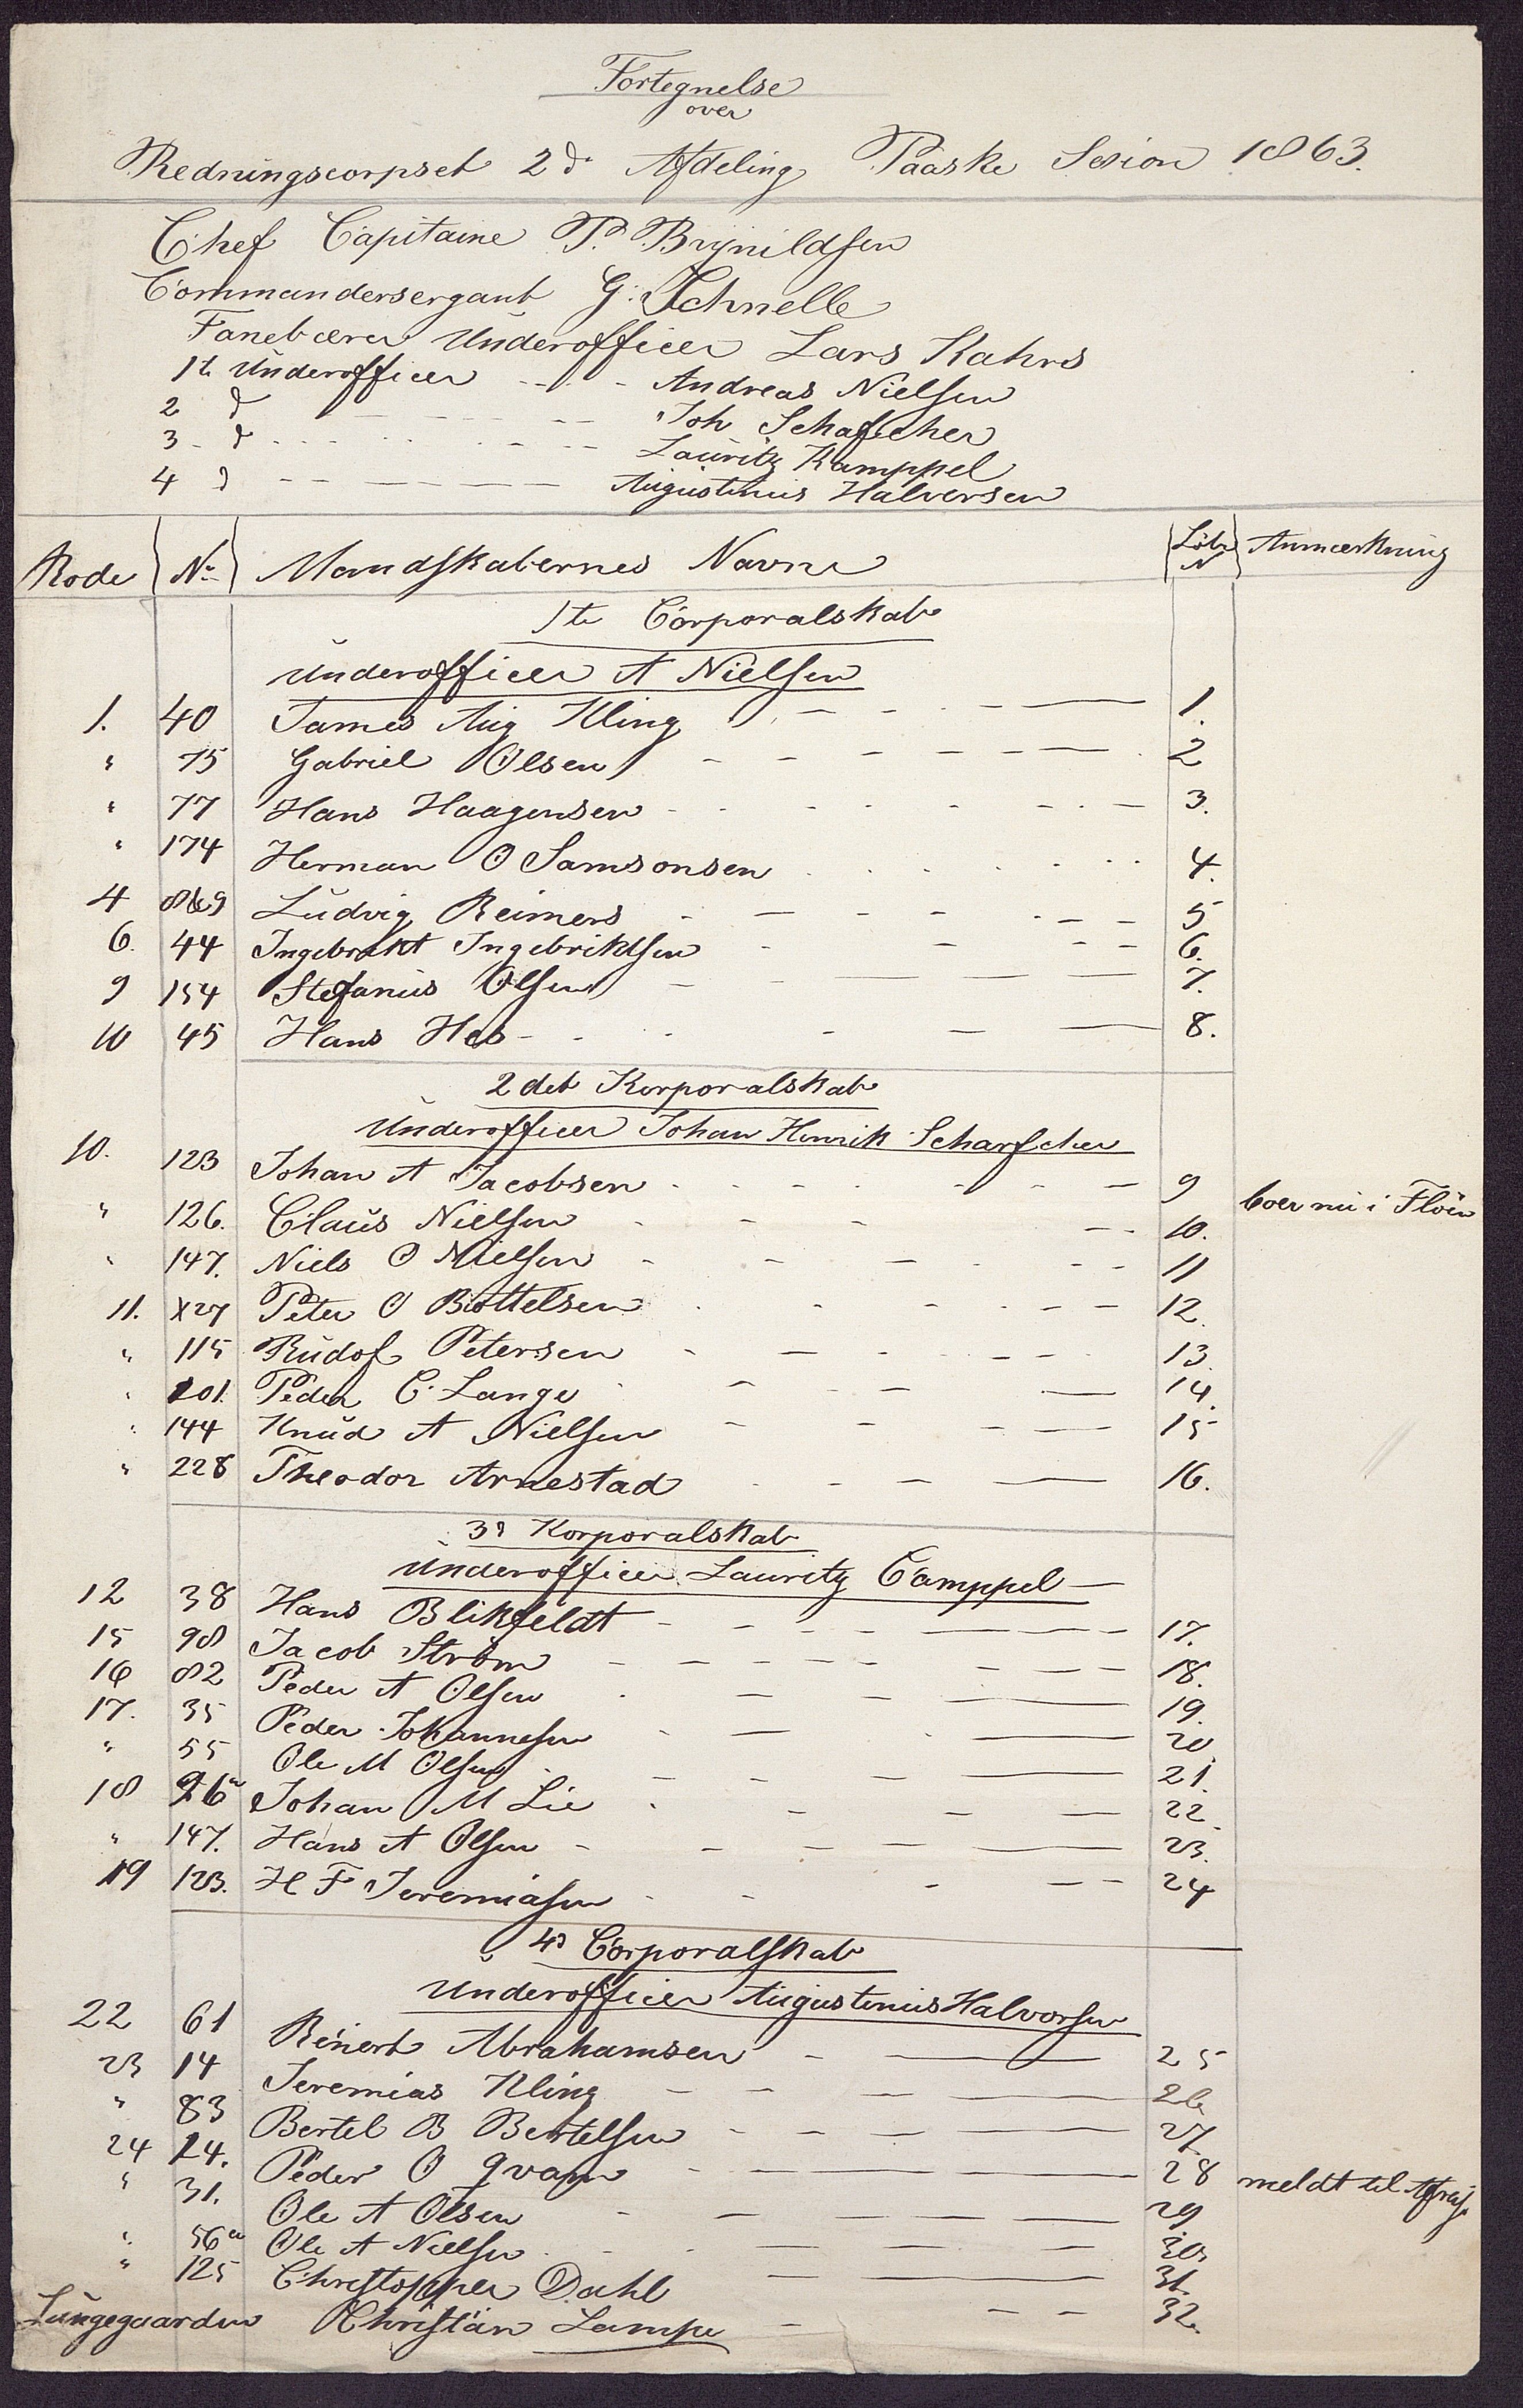 Fortegnelse
over
Redningscorpset 2d Afdeling Paaske Sesion 1863.
Chef Capitaine P. Brynildsen
Commandersergant G. Schnelle
Fanebærer Underofficer Lars Kahrs
1te Underofficer Andreas Nielsen
2 d Joh Schafscher
3 d Lauritz Kamppel
4 d Augustinus Halversen
Rode No Mandskabernes Navne Löbe N Anmærkning
1te Corporalskab
Underofficer A Nielsen
1. 40 James Aug Kling 1.
" 75 Gabriel Olsen 2
" 77 Hans Haagensen 3.
" 174 Herman O Samsonsen 4.
4 Ludvig Reimers 5
6. 44 Ingebrikt Ingebriktsen 6.
9 154 Stefanus Olsen 7.
10 45 Hans Hes 8.
2det Korporalskab
Underofficer Johan Henrik Scharfscher
10. 123 Johan A Jacobsen 9 boer nu i Flöen
" 126. Claus Nielsen 10.
" 147. Niels O Nielsen 11
11. X27 Peter O Bottelsen 12.
" 115 Rudof Petersen 13.
" 201. Peder C. Lange 14.
" 144 Knud A Nielsen 15
" 228 Theodor Arnestad 16.
3d Korporalskab
Underofficer Lauritz Camppel
12 38 Hans Blikfeldt 17.
15 98 Jacob Ström 18.
16 82 Peder A Olsen 19.
17. 35 Peder Johannesen 20
" 55 Ole M Olsen 21.
18 26a Johan M Lie 22.
" 147. Hans A Olsen 23.
19 123. H F Jeremiasen 24
4d Corporalskab
Underofficer Augustinus Halvorsen
22 61 Reinert Abrahamsen 25
23 14 Jeremias Kling 26
" 83 Bertel B Bertelsen 27.
24 14. Peder O Qvam 28 meldt til Afreise
" 31. Ole A Olsen 29
" 56a Ole A Nielsen 30.
" 125 Christopher Dahl 31.
Lungegaarden Christian Lampe 32.